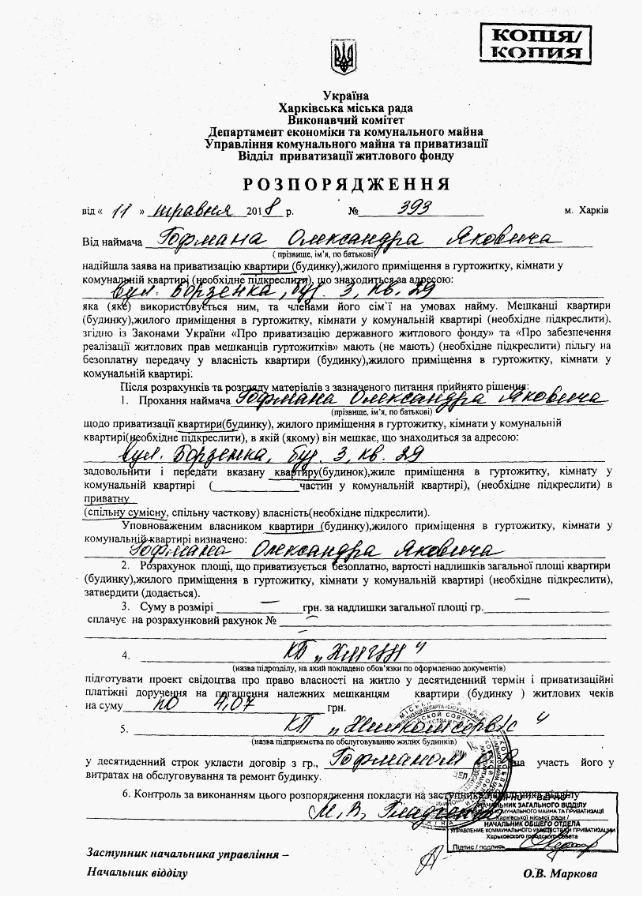 КОПІЯ/
КОПИЯ
Україна
Харківська міська рада
Виконавчий комітет
Департамент економіки та комунального майна
Управління комунального майна та приватизації
Відділ приватизації житлового фонду
РОЗПОРЯДЖЕННЯ
від « 11 » травня 2018 р. № 393 м. Харків
Від наймача Гофмана Олександра Яковича
( прізвище, ім'я, по батькові)
надійшла заява на приватизацію квартири (будинку),жилого приміщення в гуртожитку, кімнати у
комунальній квартирі (необхідне підкреслити), що знаходиться за адресою:
вул. Борзенка, буд. 3, кв. 29
яка (яке) використовується ним, та членами його сім'ї на умовах найму. Мешканці квартири
(будинку),жилого приміщення в гуртожитку, кімнати у комунальній квартирі (необхідне підкреслити),
згідно із Законами України «Про приватизацію державного житлового фонду» та «Про забезпечення
реалізації житлових прав мешканців гуртожитків» мають (не мають) (необхідне підкреслити) пільгу на
безоплатну передачу у власність квартири (будинку),жилого приміщення в гуртожитку, кімнати у
комунальній квартирі:
Після розрахунків та розгляду матеріалів з зазначеного питання прийнято рішення:
1. Прохання наймача Гофмана Олександра Яковича
(прізвище, ім'я, по батькові)
щодо приватизації квартири(будинку), жилого приміщення в гуртожитку, кімнати у комунальній
квартирі(необхідне підкреслити), в якій (якому) він мешкає, що знаходиться за адресою:
вул. Борзенка, буд. 3, кв. 29
задовольнити і передати вказану квартиру(будинок),жиле приміщення в гуртожитку, кімнату у
комунальній квартирі (____________частин у комунальній квартирі), (необхідне підкреслити) в
приватну
(спільну сумісну, спільну часткову) власність(необхідне підкреслити).
Уповноваженим власником квартири (будинку),жилого приміщення в гуртожитку, кімнати у
комунальній квартирі визначено:
Гофмана Олександра Яковича
2. Розрахунок площі, що приватизується безоплатно, вартості надлишків загальної площі квартири
(будинку),жилого приміщення в гуртожитку, кімнати у комунальній квартирі (необхідне підкреслити),
затвердити (додається).
3. Суму в розмірі — грн. за надлишки загальної площі гр. —
сплачує на розрахунковий рахунок № —
4. КП „
(назва підрозділу, на який покладено обов'язки по оформленню документів)
підготувати проект свідоцтва про право власності на житло у десятиденний термін і приватизаційні
платіжні доручення на погашення належних мешканцям квартири (будинку ) житлових чеків
на суму по 4,07 грн.
5. КП „Жилкомсервіс“
(назва підприємства по обслуговуванню жилих будинків)
у десятиденний строк укласти договір з гр., Гофманом на участь його у
витратах на обслуговування та ремонт будинку.
6. Контроль за виконанням цього розпорядження покласти на заступника начальника відділу
М. В.
НАЧАЛЬНИК ЗАГАЛЬНОГО ВІДДІЛУ
Харківської міської ради /
НАЧАЛЬНИК ОБЩЕГО ОТДЕЛА
УПРАВЛЕНИЕ КОММУНАЛЬНОГО ИМУЩЕСТВА И ПРИВАТИЗАЦИИ
Харьковского городского совета
Підпис / подпись
Заступник начальника управління –
Начальник відділу О.В. Маркова